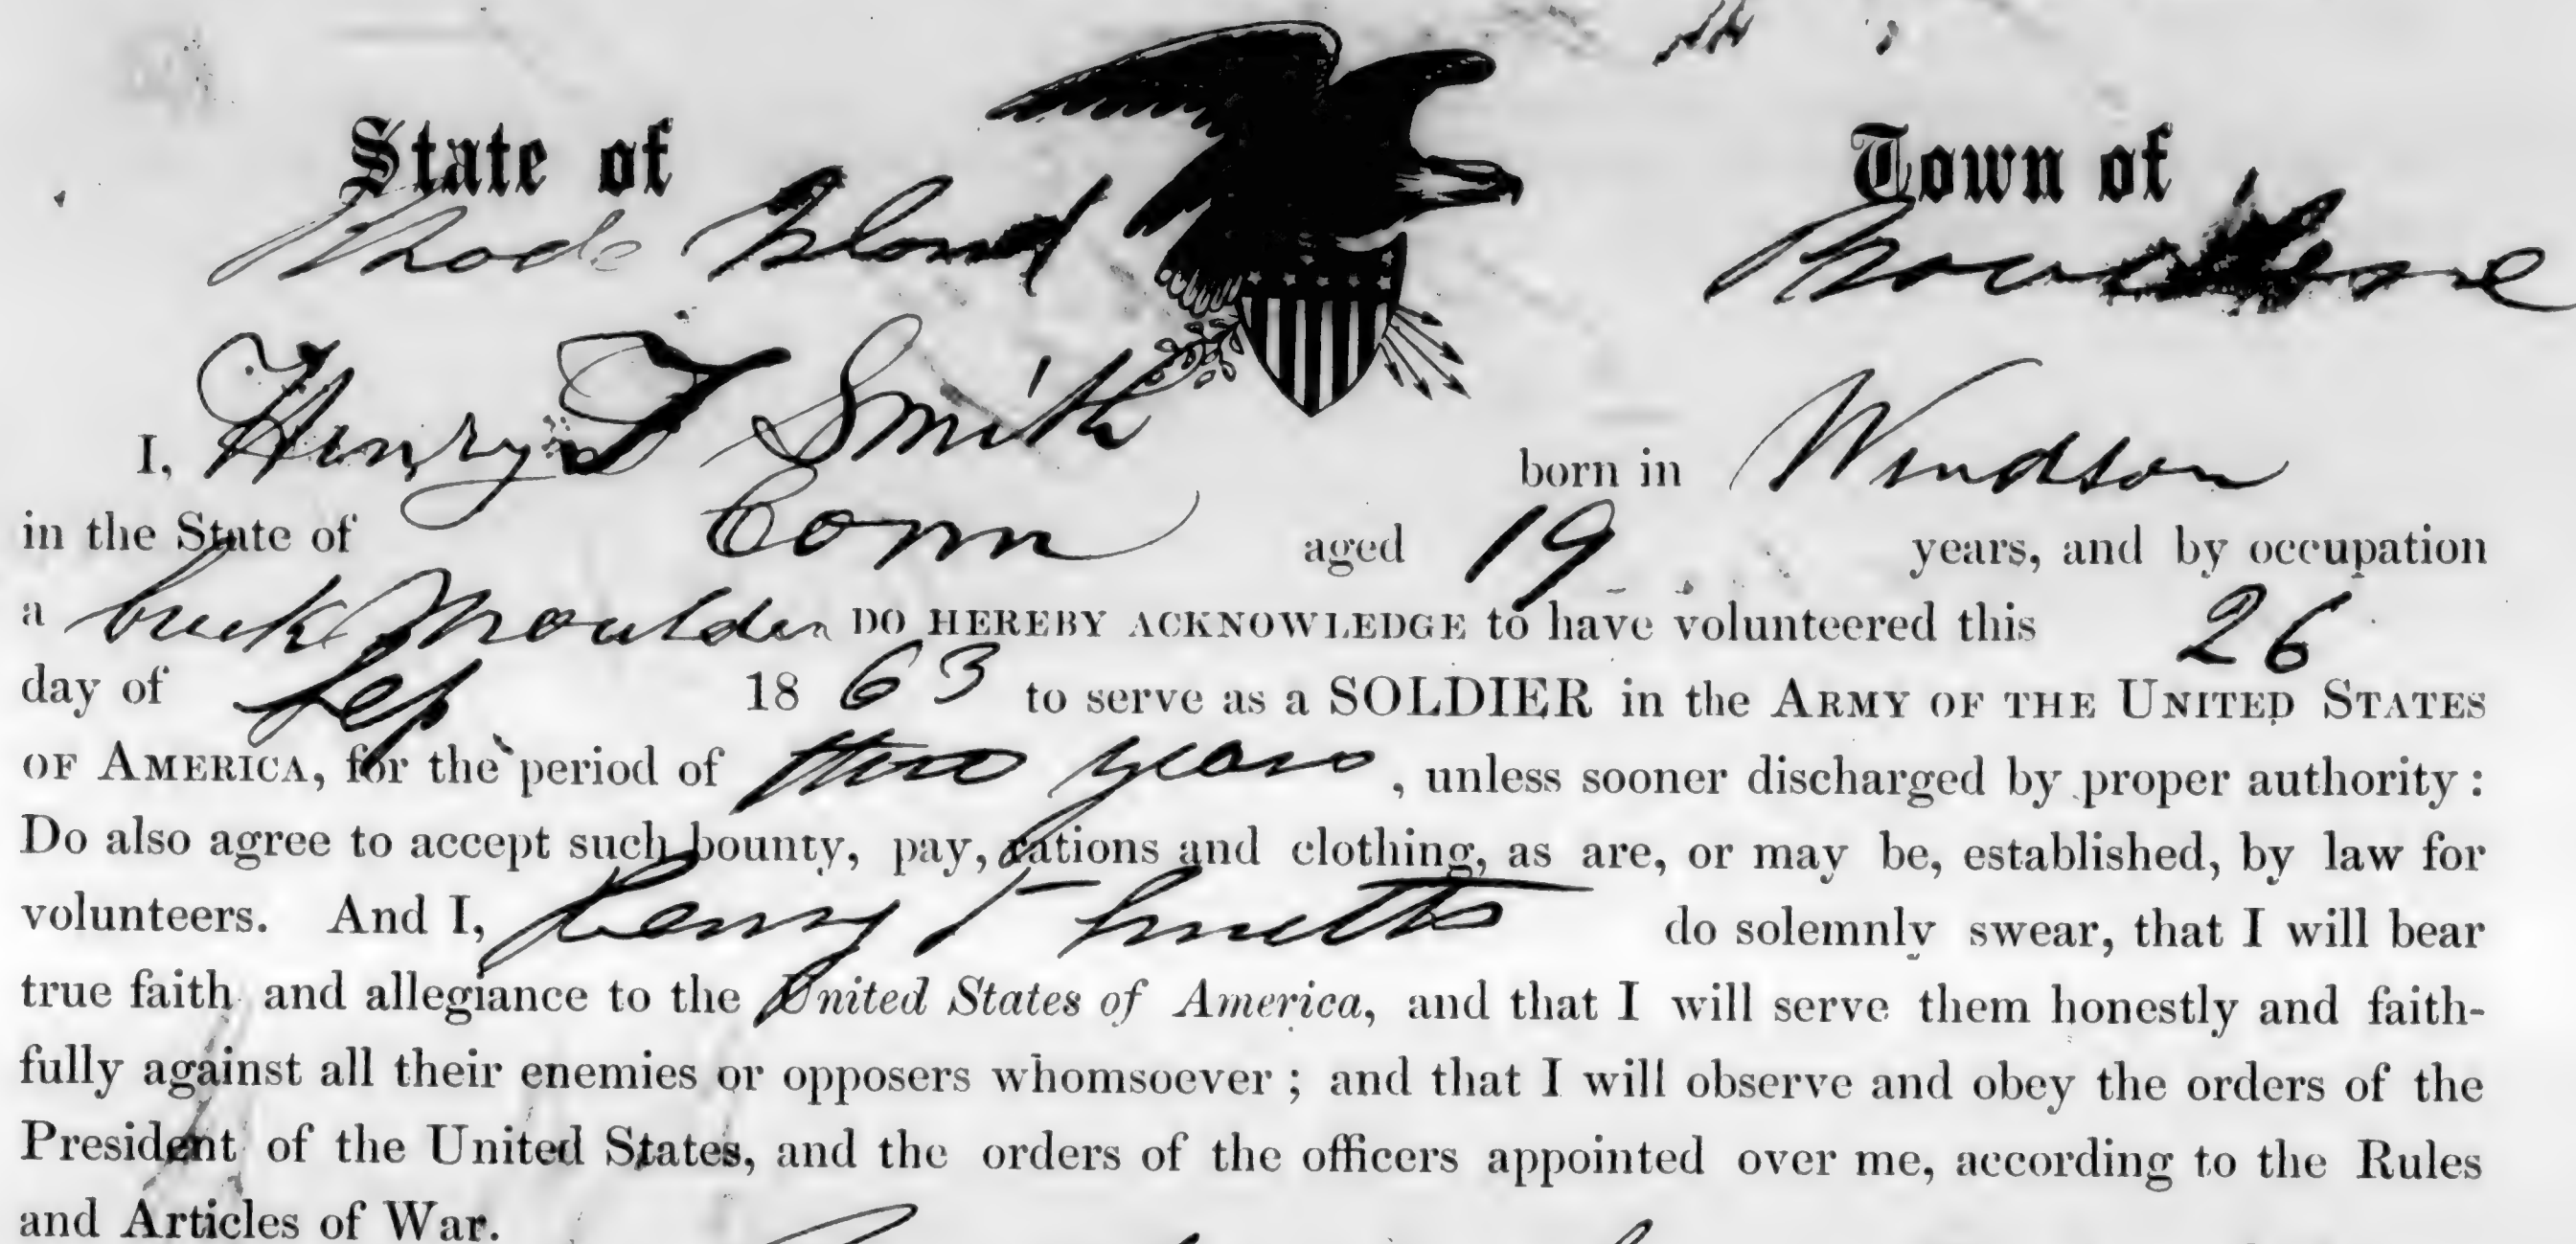 State of Town of
Rhode Island Providence
I, Henry T Smith born in Windsor
in the State of Conn aged 19 years, and by occupation
a brick Moulder DO HEREBY ACKNOWLEDGE to have volunteered this 26
day of Sep 18 63 to serve as a SOLDIER in the ARMY OF THE UNITED STATES
OF AMERICA, for the period of three years, unless sooner discharged by proper authority:
Do also agree to accept such bounty, pay, rations and clothing, as are, or may be, established, by law for
volunteers. And I, Henry T Smith do solemnly swear, that I will bear
true faith and allegiance to the United States of America, and that I will serve them honestly and faith-
fully against all their enemies or opposers whomsoever; and that I will observe and obey the orders of the
President of the United States, and the orders of the officers appointed over me, according to the Rules
and Articles of War.